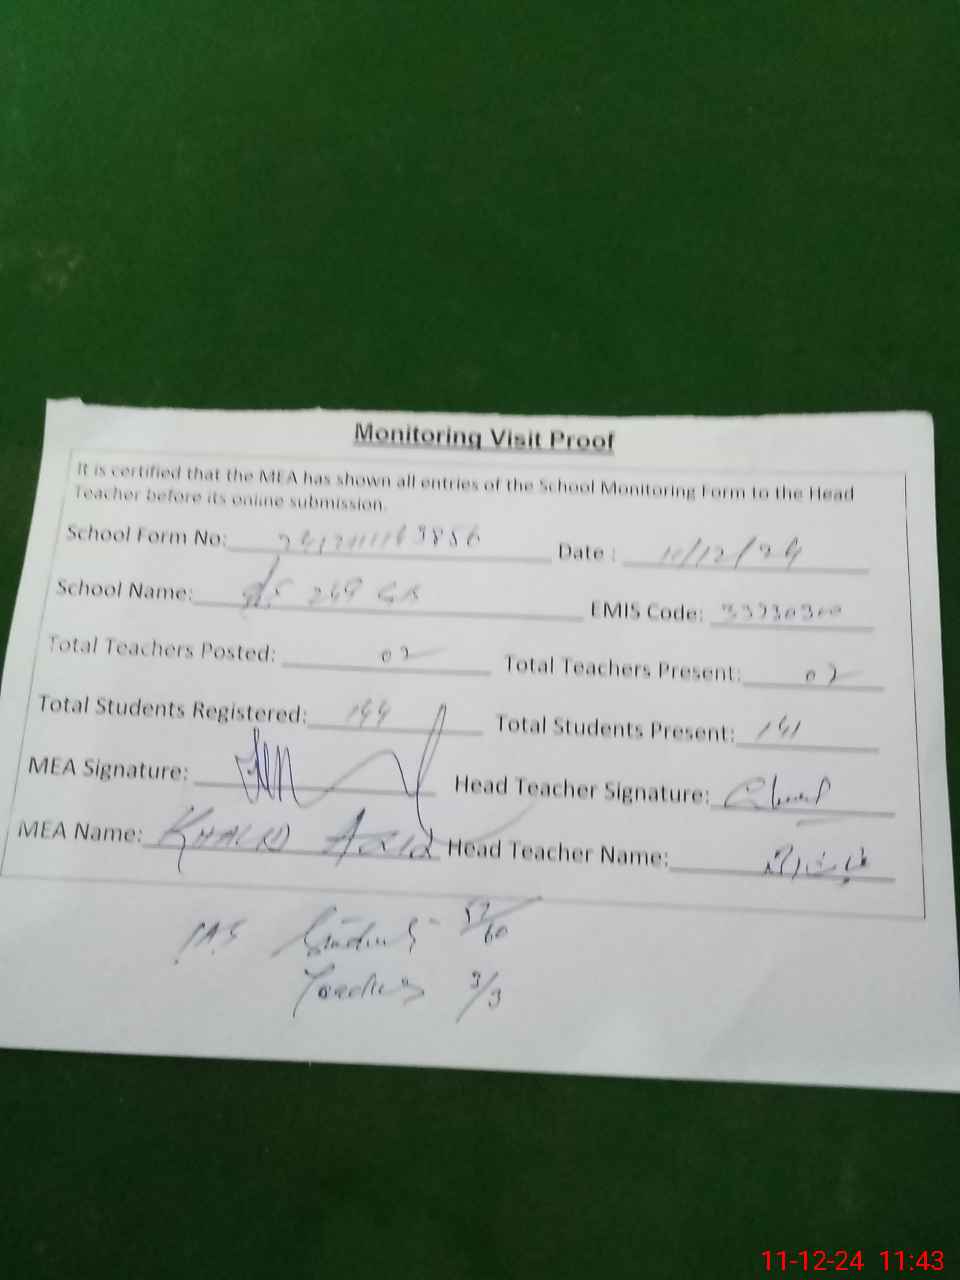 Monitoring Visit Proof
It is certified that the MEA has shown all entries of the School Monitoring Form to the Head
Teacher before its online submission.
School Form No: Date : 11/12/24
School Name: 269 GB EMIS Code:
Total Teachers Posted: 02 Total Teachers Present: 02
Total Students Registered: 144 Total Students Present: 141
MEA Signature: Head Teacher Signature:
MEA Name: KHALID Head Teacher Name:
Students 57/60
Teachers 3/3
11-12-24 11:43